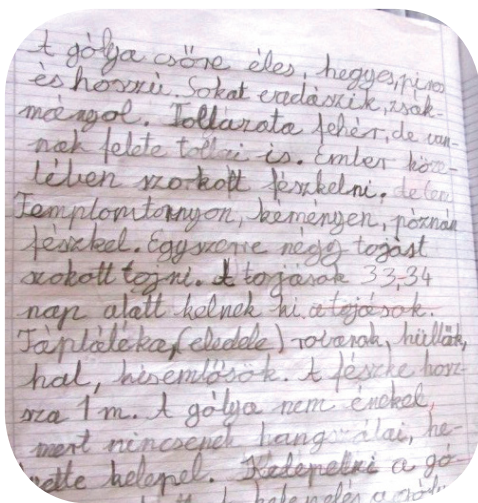 A gólya csőre éles, hegyes, piros
és hosszú. Sokat vadászik, zsák-
mányol. Tollazata fehér, de van-
nak fekete tollai is. Ember köze-
lében szokott fészkelni.
Templomtornyon, keményen, póznán
fészkel. Egyszerre négy tojást
szokott tojni. A torjások 33,34
nap alatt kelnek ki a tojások.
Tápláléka, (eledele) rovarok, hüllők,
hal, kisemlősök. A fészke hosz-
sza 1 m. A gólya nem énekel,
mert nincsenek hangszálai, he-
lyette kelepel. a gó-
kelepelés a